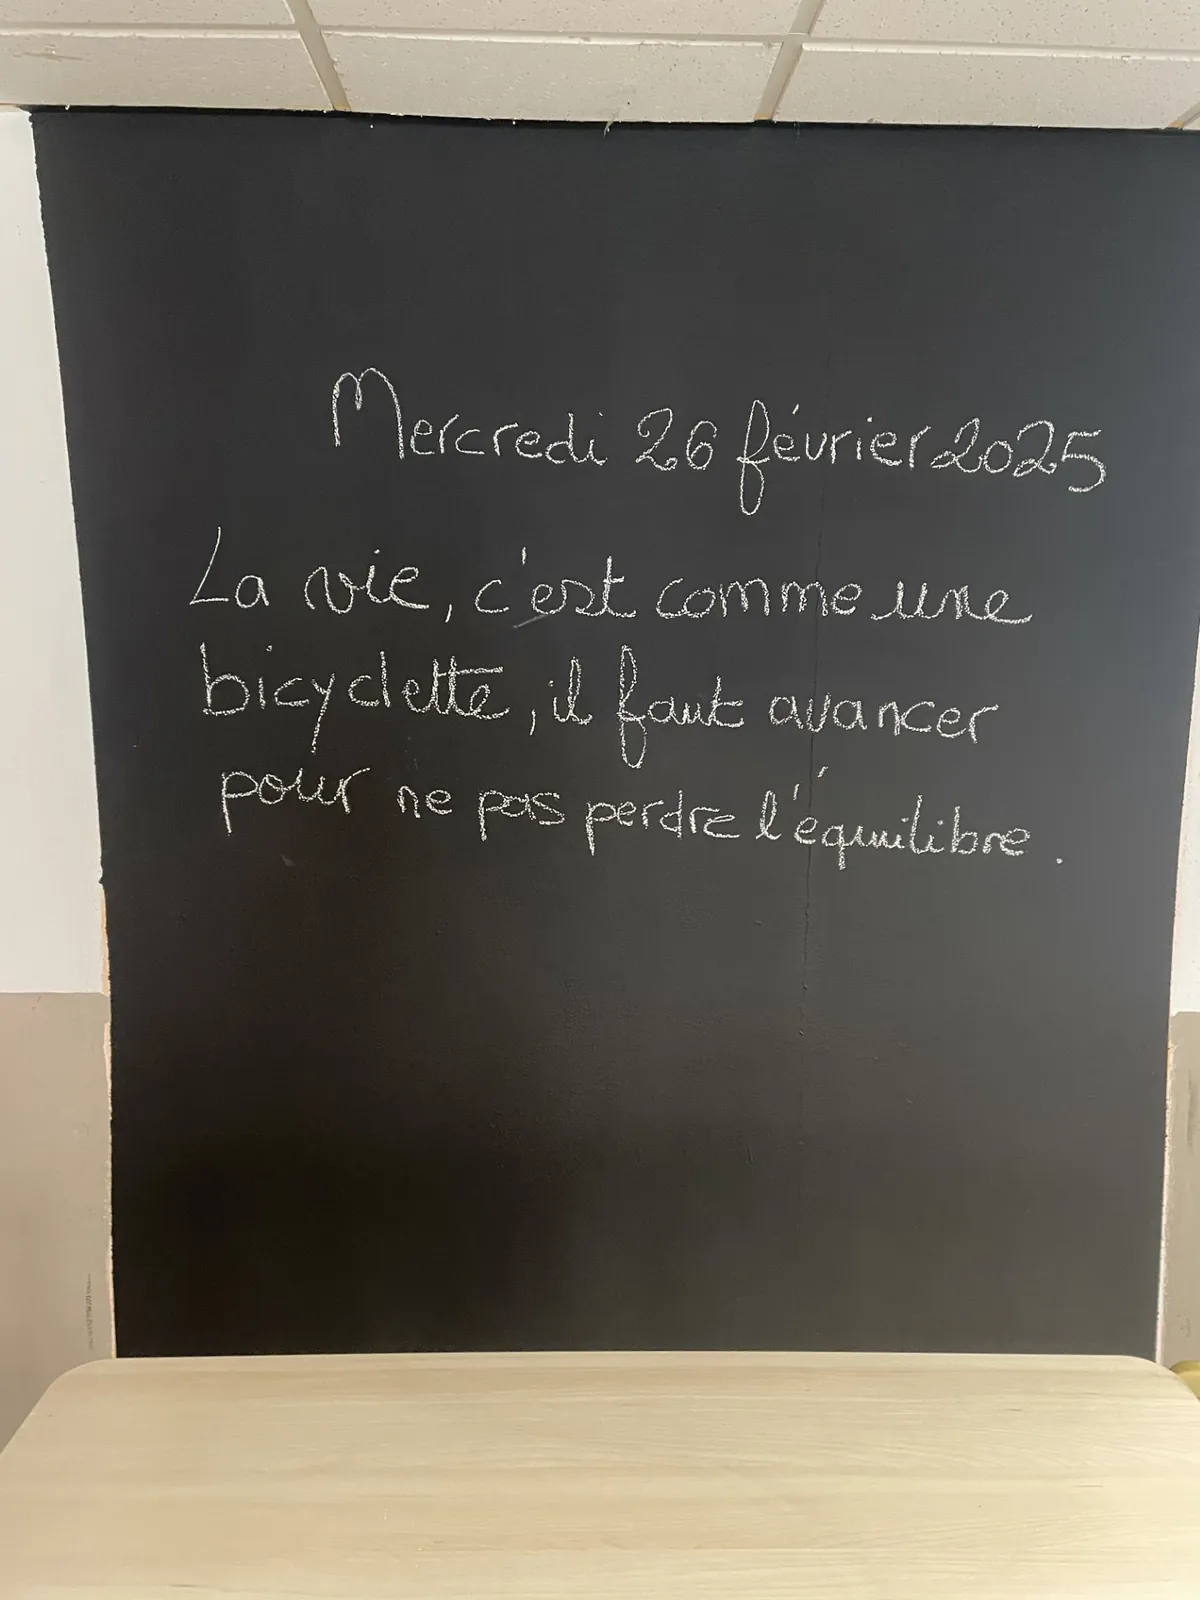 Mercredi 26 février 2025
La vie, c'est comme une
bicyclette, il faut avancer
pour ne pas perdre l'équilibre.